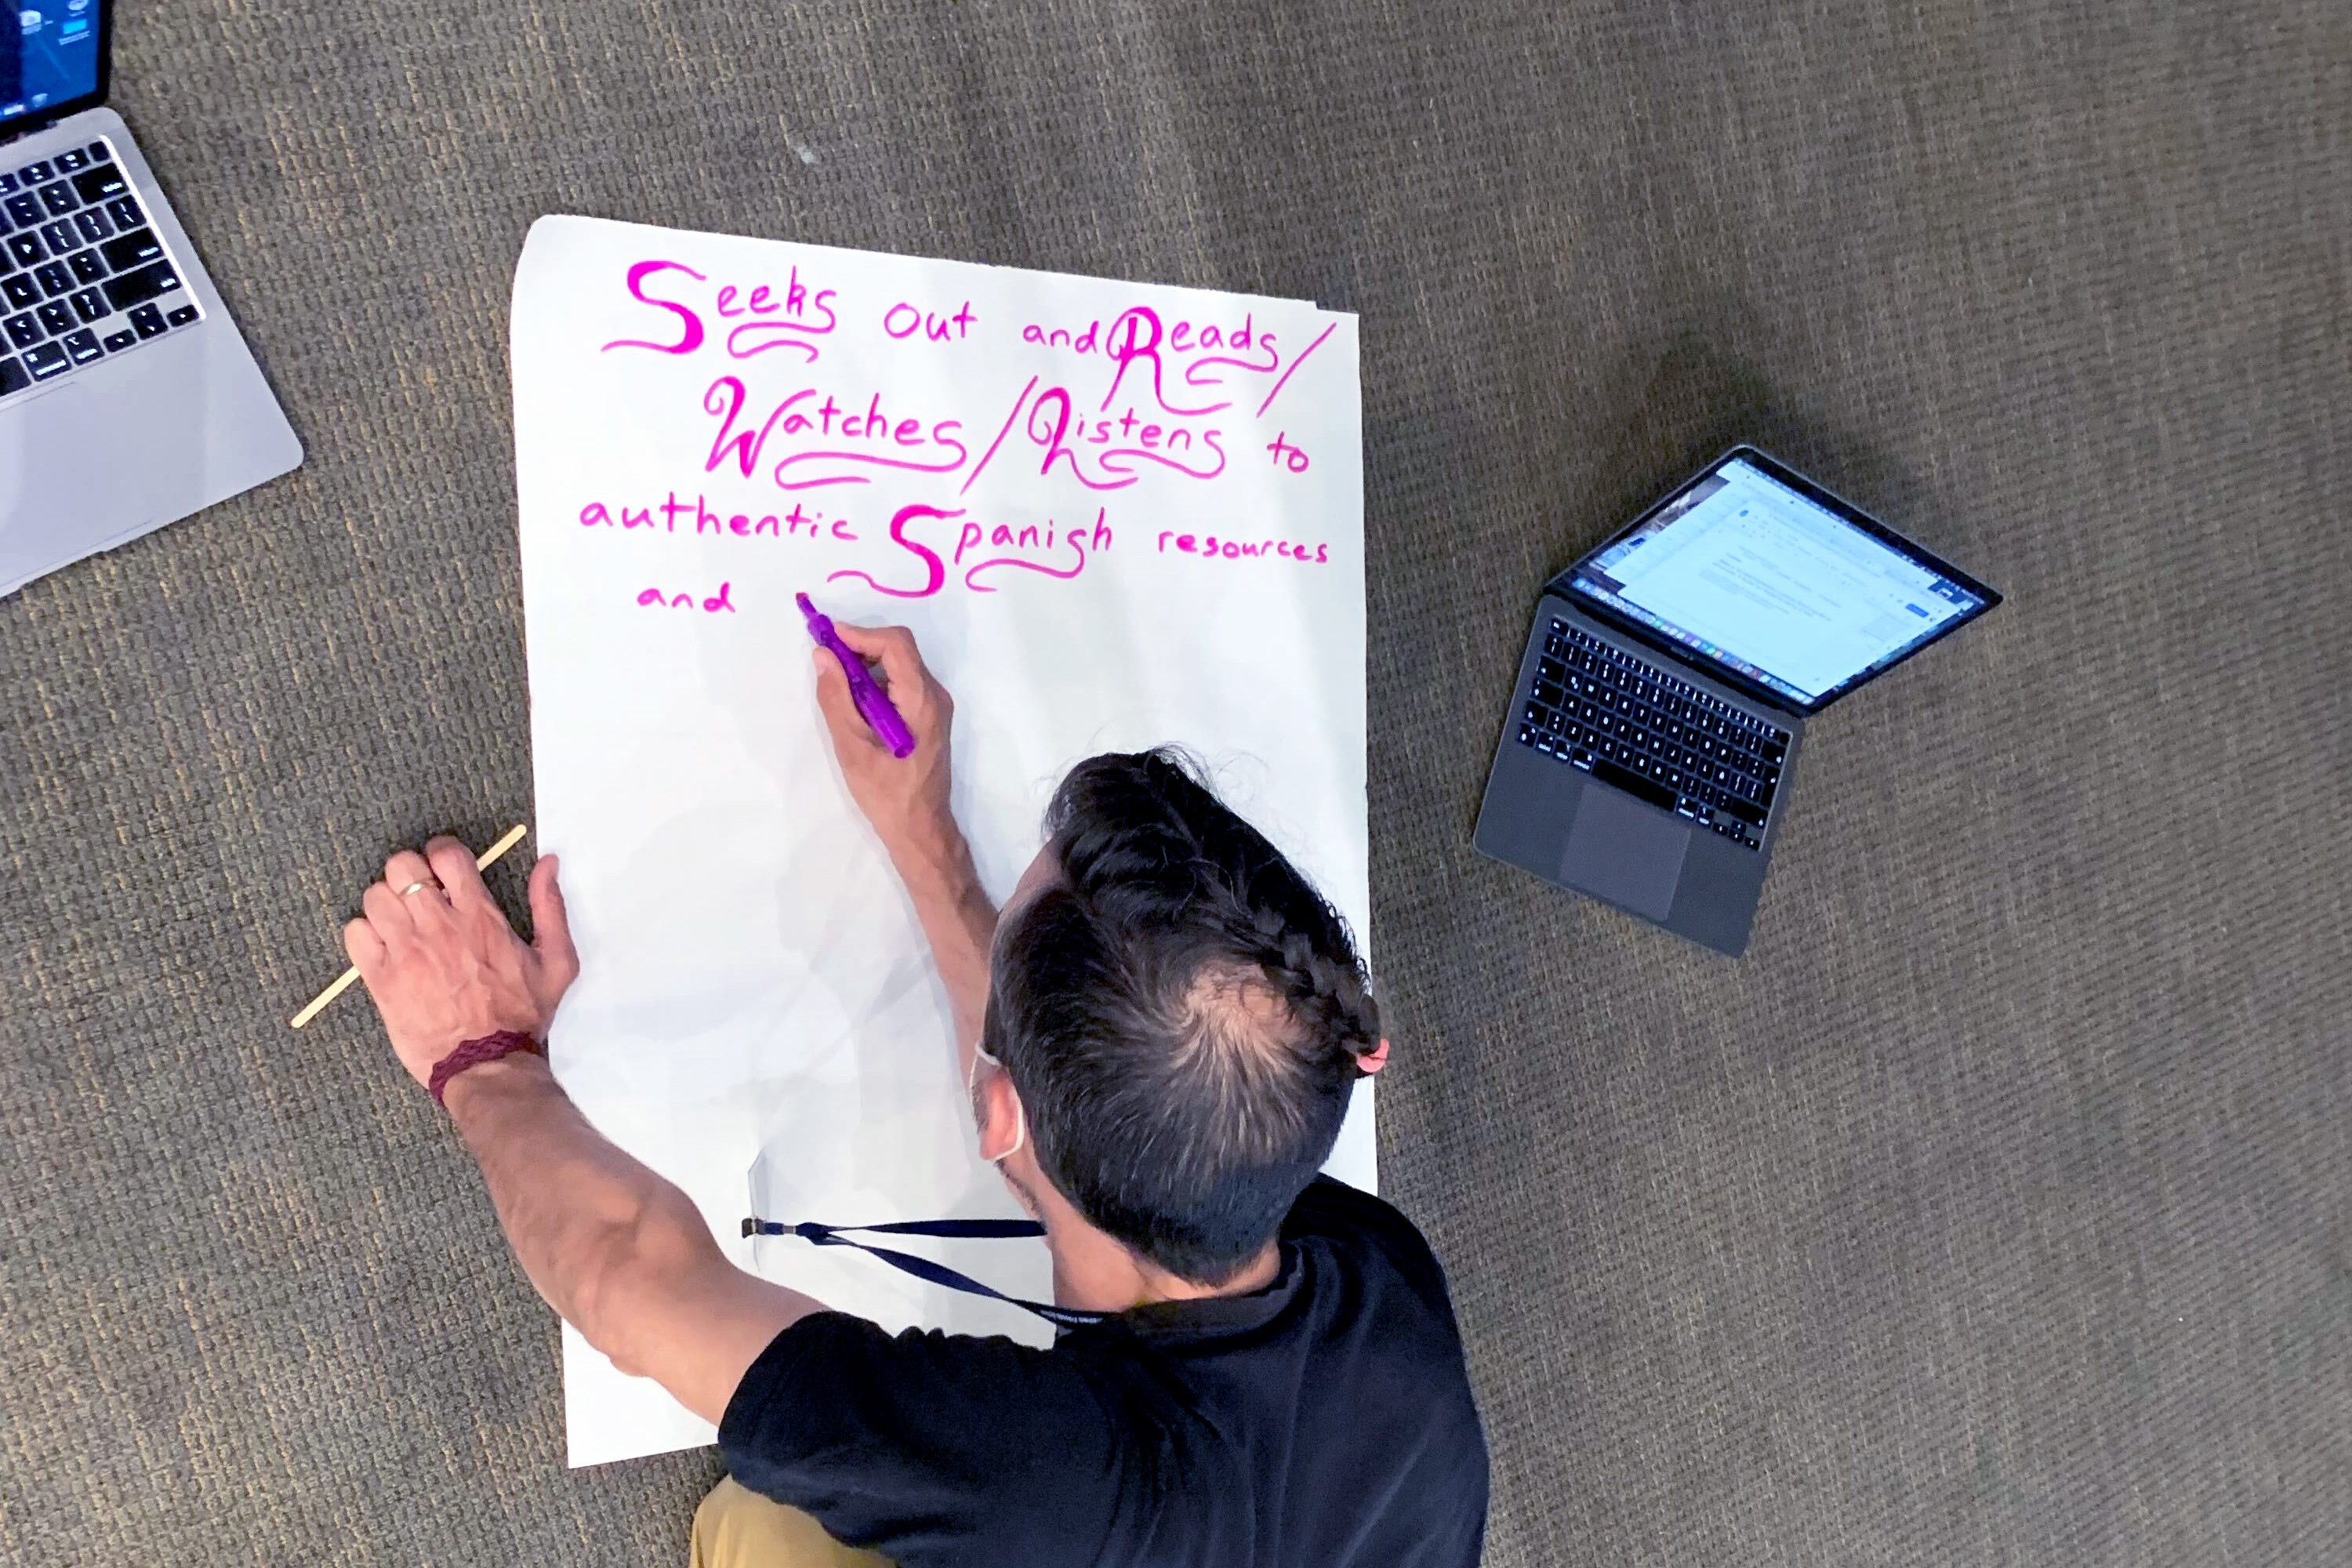 Seeks out and Reads/
Watches/Listens to
authentic Spanish resources
and